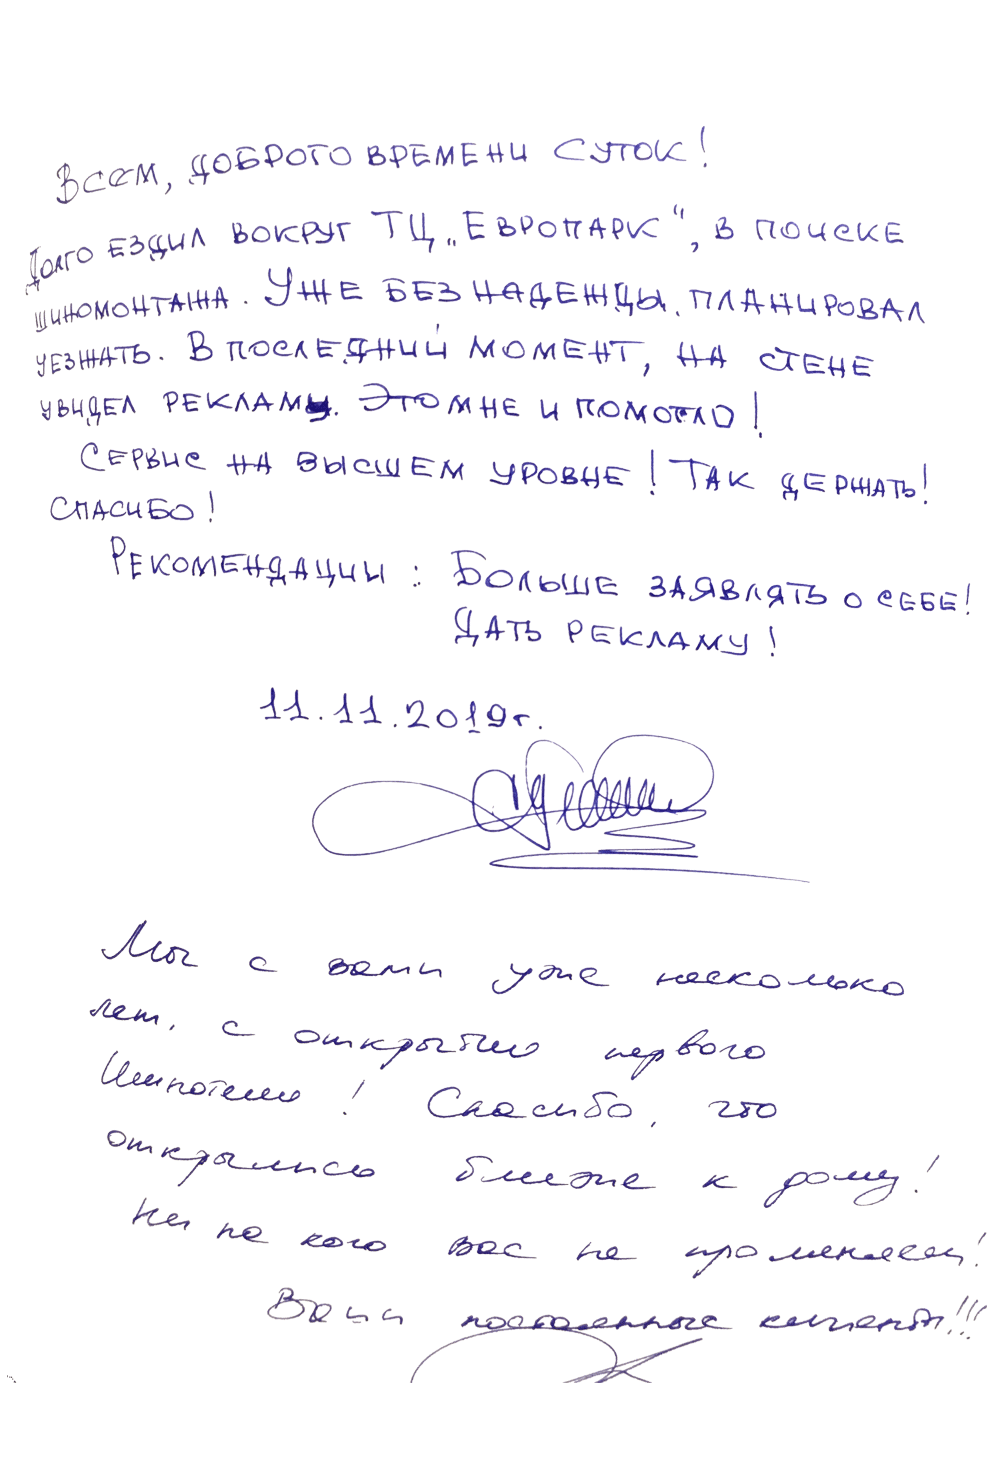 Всем, доброго времени суток!
Долго ездил вокруг ТЦ „Европарк“, в поиске
шиномонтажа. Уже без надежды, планировал
уезжать. В последний момент, на стене
увидел рекламу. Это мне и помогло!
Сервис на высшем уровне! Так держать!
Спасибо!
Рекомендации: Больше заявлять о себе!
Дать рекламу!
11.11.2019г.
Мы с вами уже несколько
лет, с открытия первого
! Спасибо, что
открылись ближе к дому!
Ни на кого вас не променяем!
Ваши постоянные клиенты!!!